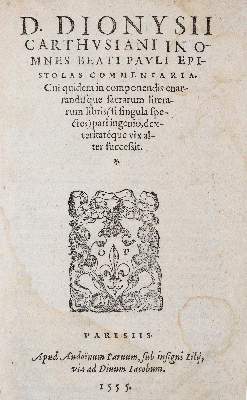 D. DIONYSII
CARTHVSIANI IN O-
MNES BEATI PAVLI EPI-
STOLAS COMMENTARIA.
Cui quidem in componendis enar-
randisque sacrarum litera-
rum libris (si singula spe-
ctes) pari ingenio, dex-
teritatéque vix al-
ter successit.
PARISIIS.
Apud Audoënum Paruum, sub insigni Lilij,
via ad Diuum Iacobum.
1555.